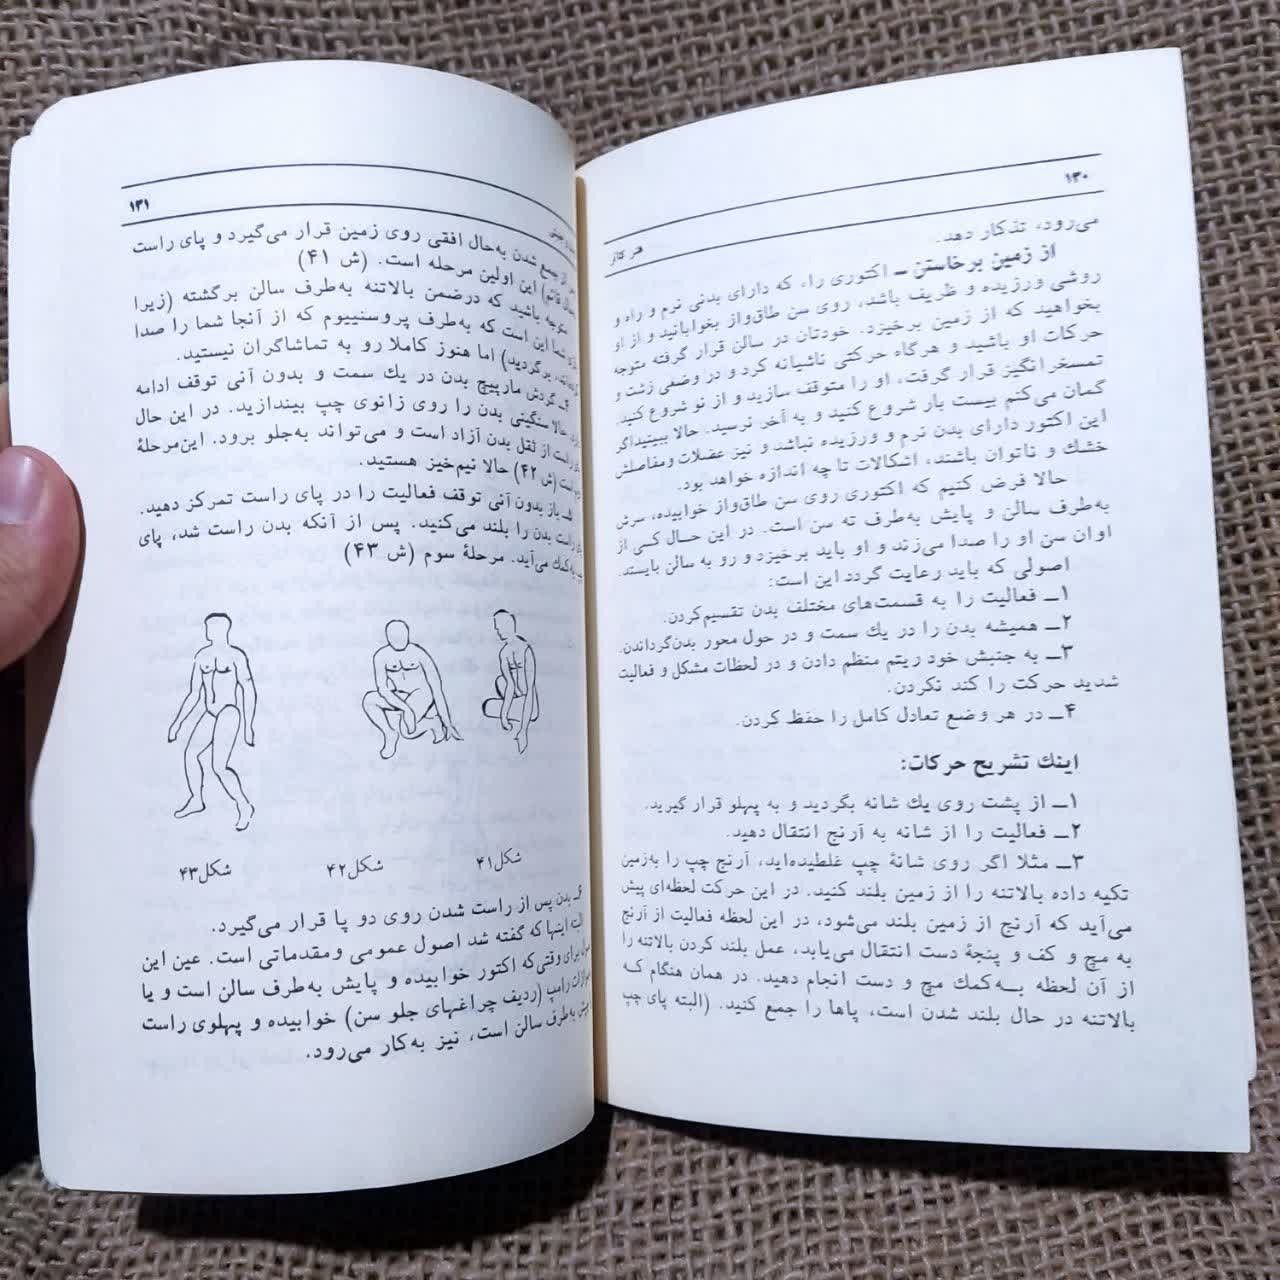 ۱۳۰
هنر تئاتر
می‌رود، تذکار دهد.
از زمین برخاستن ــ اکتوری راء، که دارای بدنی نرم و راه و
روشی ورزیده و ظریف باشد، روی سن طاق‌واز بخوابانید و از او
بخواهید که از زمین برخیزد. خودتان در سالن قرار گرفته متوجه
حرکات او باشید و هرگاه حرکتی ناشیانه کرد و در وضعی زشت و
تمسخر انگیز قرار گرفت، او را متوقف سازید و از نو شروع کنید.
گمان می‌کنم بیست بار شروع کنید و به آخر نرسید. حالا ببینیداگر
این اکتور دارای بدن نرم و ورزیده نباشد و نیز عضلات ومفاصلش
خشك و ناتوان باشند، اشکالات تا چه اندازه خواهد بود.
حالا فرض کنیم که اکتوری روی سن طاق‌واز خوابیده، سرش
به‌طرف سالن و پایش به‌طرف ته سن است. در این حال کسی از
اوان سن او را صدا می‌زند و او باید برخیزد و رو به سالن بایستد.
اصولی که باید رعایت گردد این است:
۱ــ فعالیت را به قسمت‌های مختلف بدن تقسیم‌کردن.
۲ــ همیشه بدن را در يك سمت و در حول محور بدن‌گرداندن.
۳ــ به جنبش خود ریتم منظم دادن و در لحظات مشکل و فعالیت
شدید حرکت را کند نکردن.
۴ــ در هر وضع تعادل کامل را حفظ کردن.
اینك تشریح حرکات:
۱ــ از پشت روی يك شانه بگردید و به پهلو قرار گیرید.
۲ــ فعالیت را از شانه به آرنج انتقال دهید.
۳ــ مثلا اگر روی شانهٔ چپ غلطیده‌اید، آرنج چپ را به‌زمین
تکیه داده بالاتنه را از زمین بلند کنید. در این حرکت لحظه‌ای پیش
می‌آید که آرنج از زمین بلند می‌شود، در این لحظه فعالیت از آرنج
به مچ و کف و پنجهٔ دست انتقال می‌یابد، عمل بلند کردن بالاتنه را
از آن لحظه بــه‌کمك مچ و دست انجام دهید. در همان هنگام کـه
بالاتنه در حال بلند شدن است، پاها را جمع کنید. (البته پای چپ
۱۳۱
پس از جمع شدن به‌حال افقی روی زمین قرار می‌گیرد و پای راست
قائم) این اولین مرحله است. (ش ۴۱)
متوجه باشید که درضمن بالاتنه به‌طرف سالن برگشته (زیرا
شما این است که به‌طرف پروسنییوم که از آنجا شما را صدا
برگردید) اما هنوز کاملا رو به تماشاگران نیستید.
۴ــ گردش مارپیچ بدن در يك سمت و بدون آنی توقف ادامه
حالا سنگینی بدن را روی زانوی چپ بیندازید. در این حال
راست از ثقل بدن آزاد است و می‌تواند به‌جلو برود. این‌مرحلهٔ
است (ش ۴۲) حالا نیم‌خیز هستید.
باز بدون آنی توقف فعالیت را در پای راست تمرکز دهید.
راست بدن را بلند می‌کنید. پس از آنکه بدن راست شد، پای
به‌کمك می‌آید. مرحلهٔ سوم (ش ۴۳)
شکل۴۱
شکل۴۲
شکل۴۳
۶ــ بدن پس از راست شدن روی دو پا قرار می‌گیرد.
اینها که گفته شد اصول عمومی ومقدماتی است. عین این
برای وقتی‌که اکتور خوابیده و پایش به‌طرف سالن است و یا
رامپ (ردیف چراغهای جلو سن) خوابیده و پهلوی راست
به‌طرف سالن است، نیز به‌کار می‌رود.